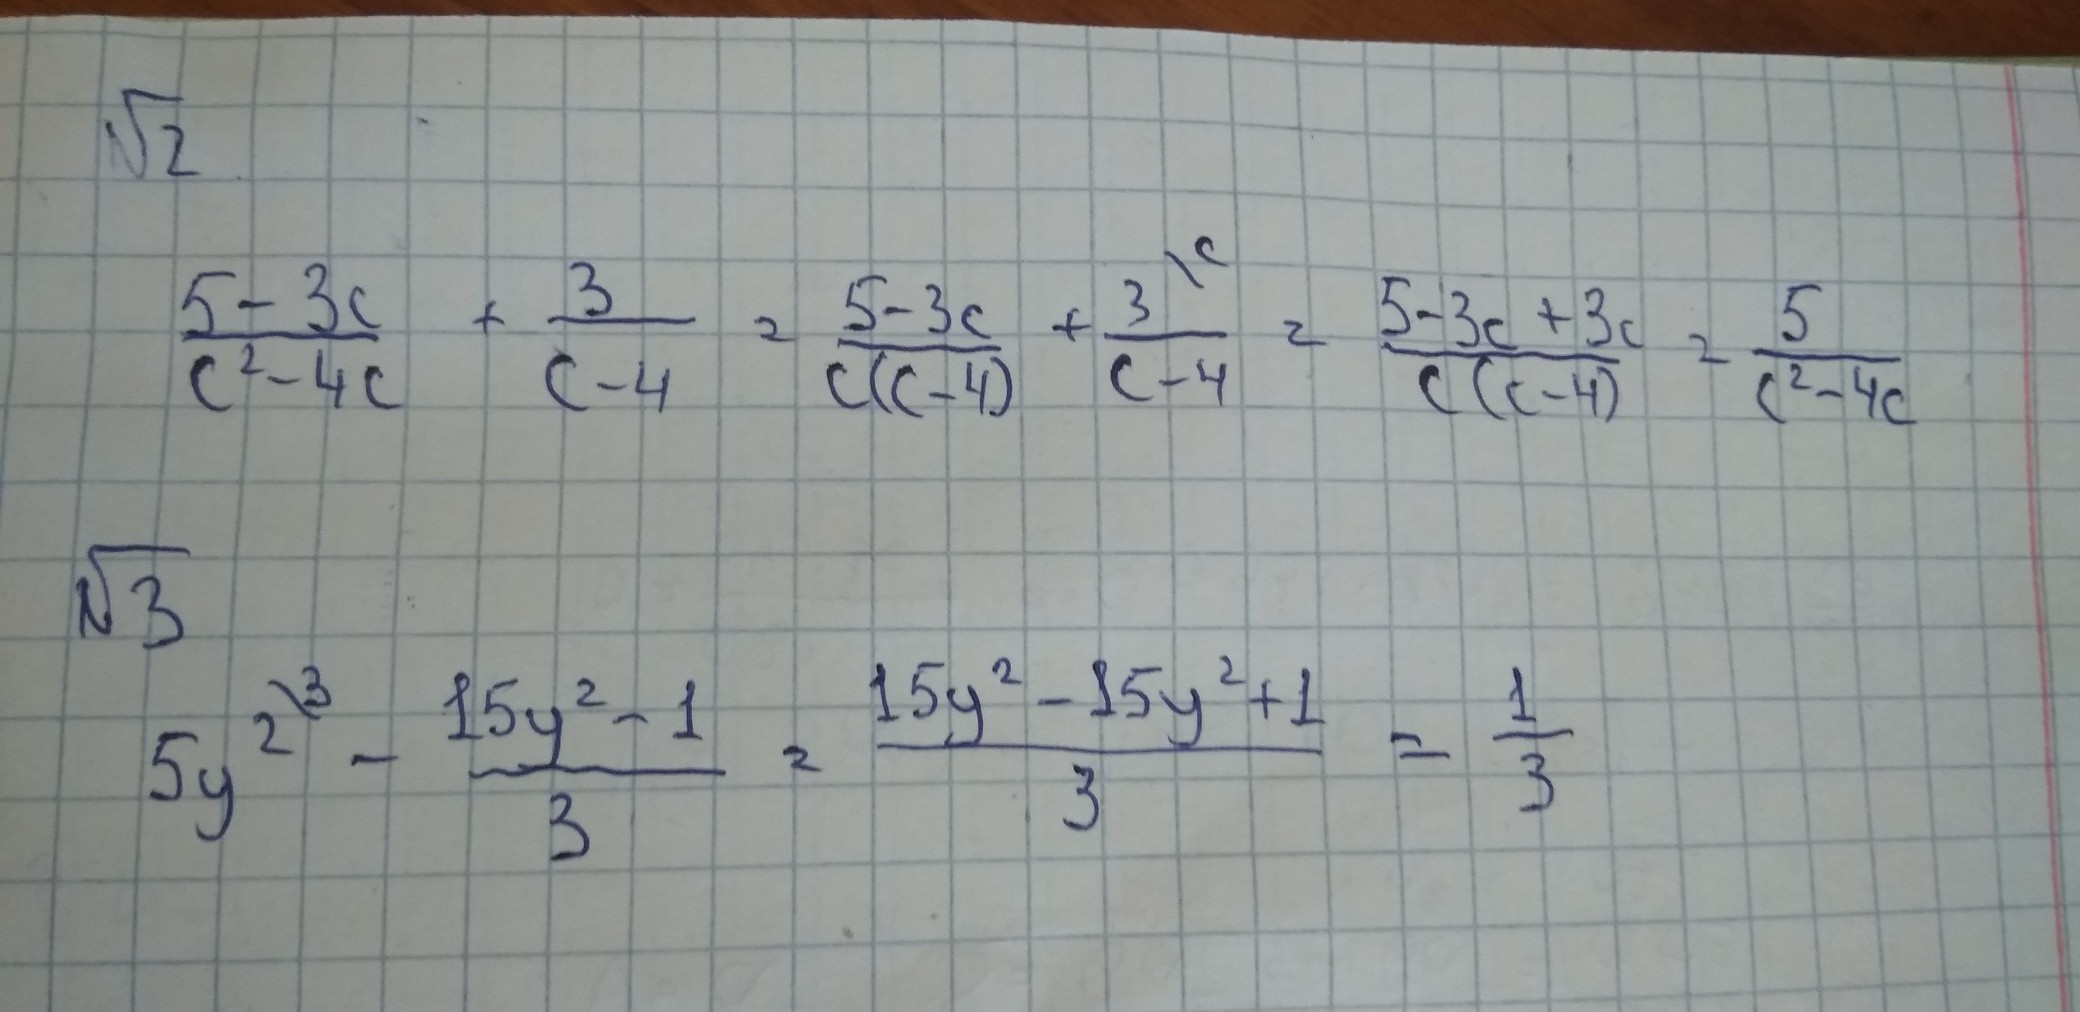 √2
(5-3c)/(c²-4c) + 3/(c-4) = (5-3c)/(c(c-4)) + 3\c/(c-4) = (5-3c+3c)/(c(c-4)) = 5/(c²-4c)
√3
5y²\3 - (15y²-1)/3 = (15y²-15y²+1)/3 = 1/3